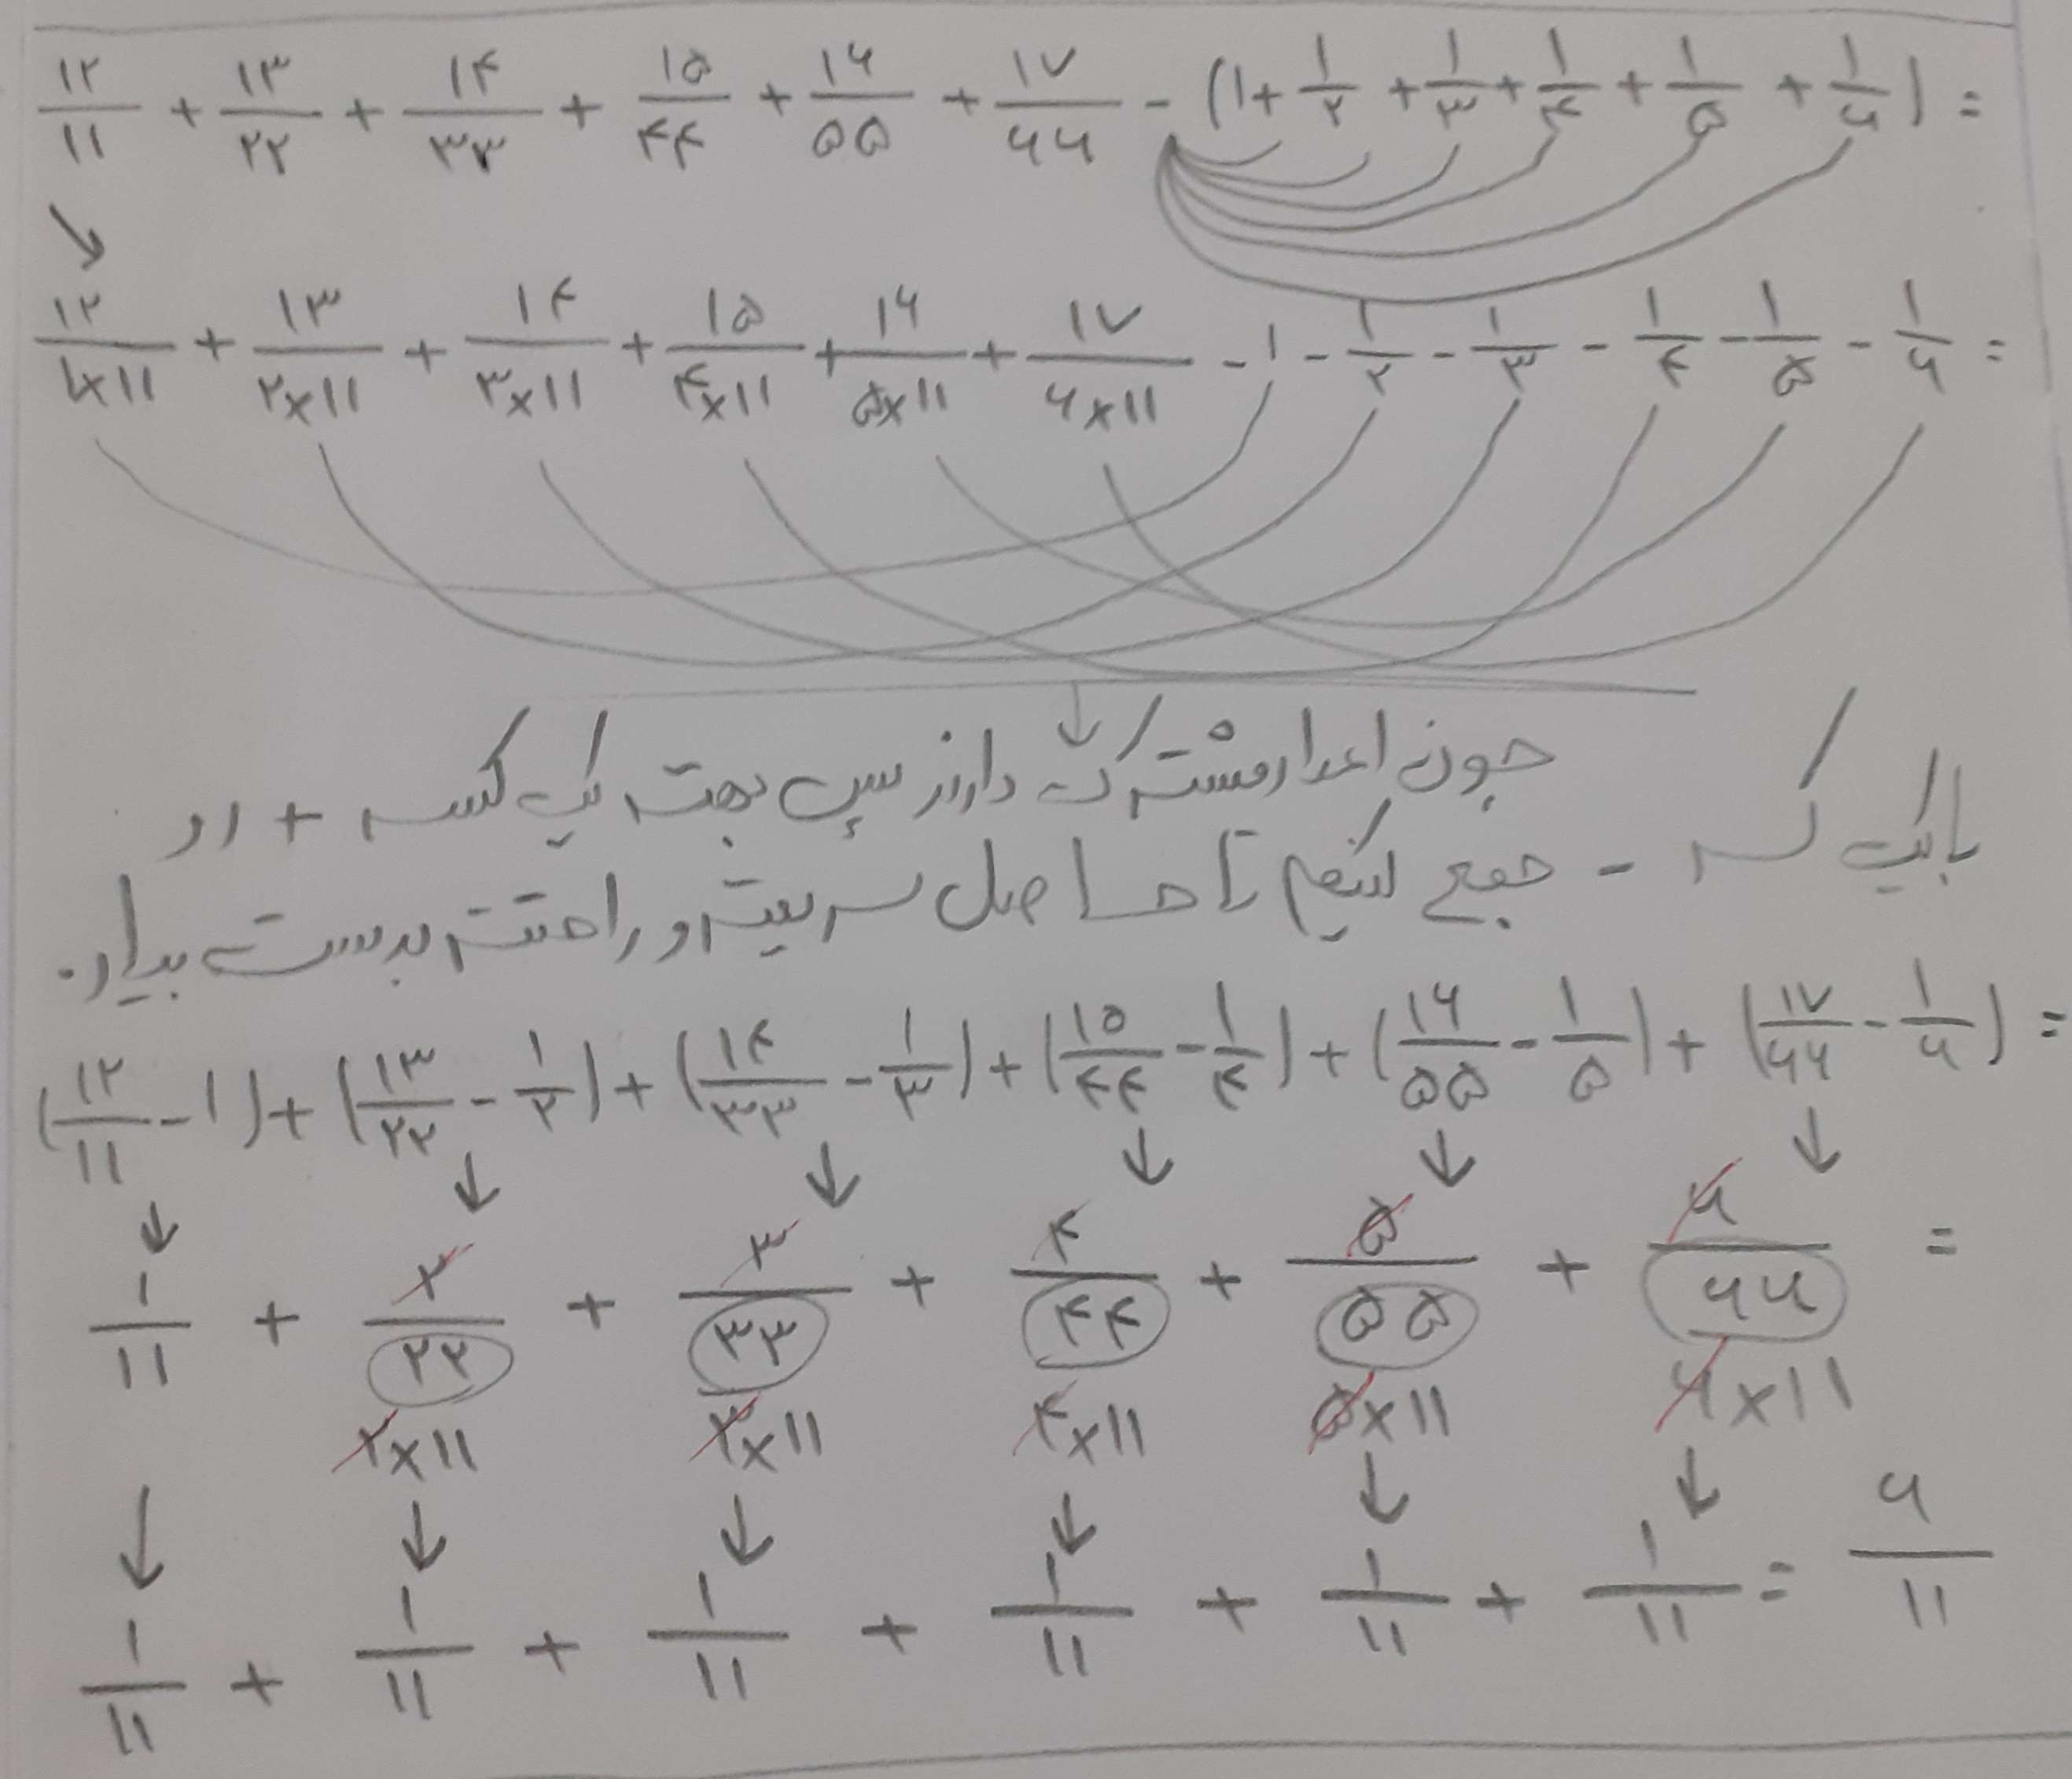 ۱۲/۱۱ + ۱۳/۲۲ + ۱۴/۳۳ + ۱۵/۴۴ + ۱۶/۵۵ + ۱۷/۶۶ - (۱ + ۱/۲ + ۱/۳ + ۱/۴ + ۱/۵ + ۱/۶) =
۱۲/۱×۱۱ + ۱۳/۲×۱۱ + ۱۴/۳×۱۱ + ۱۵/۴×۱۱ + ۱۶/۵×۱۱ + ۱۷/۶×۱۱ - ۱ - ۱/۲ - ۱/۳ - ۱/۴ - ۱/۵ - ۱/۶ =
چون اعداد مشترک دارند پس بهتر یک کسر + رو
با یک کسر - جمع کنیم تا حاصل سریعتر و راحتتر بدست بیاد.
(۱۲/۱۱ - ۱) + (۱۳/۲۲ - ۱/۲) + (۱۴/۳۳ - ۱/۳) + (۱۵/۴۴ - ۱/۴) + (۱۶/۵۵ - ۱/۵) + (۱۷/۶۶ - ۱/۶) =
۱/۱۱ + ۲/۲۲ + ۳/۳۳ + ۴/۴۴ + ۵/۵۵ + ۶/۶۶ =
۲×۱۱ ۳×۱۱ ۴×۱۱ ۵×۱۱ ۶×۱۱
۱/۱۱ + ۱/۱۱ + ۱/۱۱ + ۱/۱۱ + ۱/۱۱ + ۱/۱۱ = ۶/۱۱